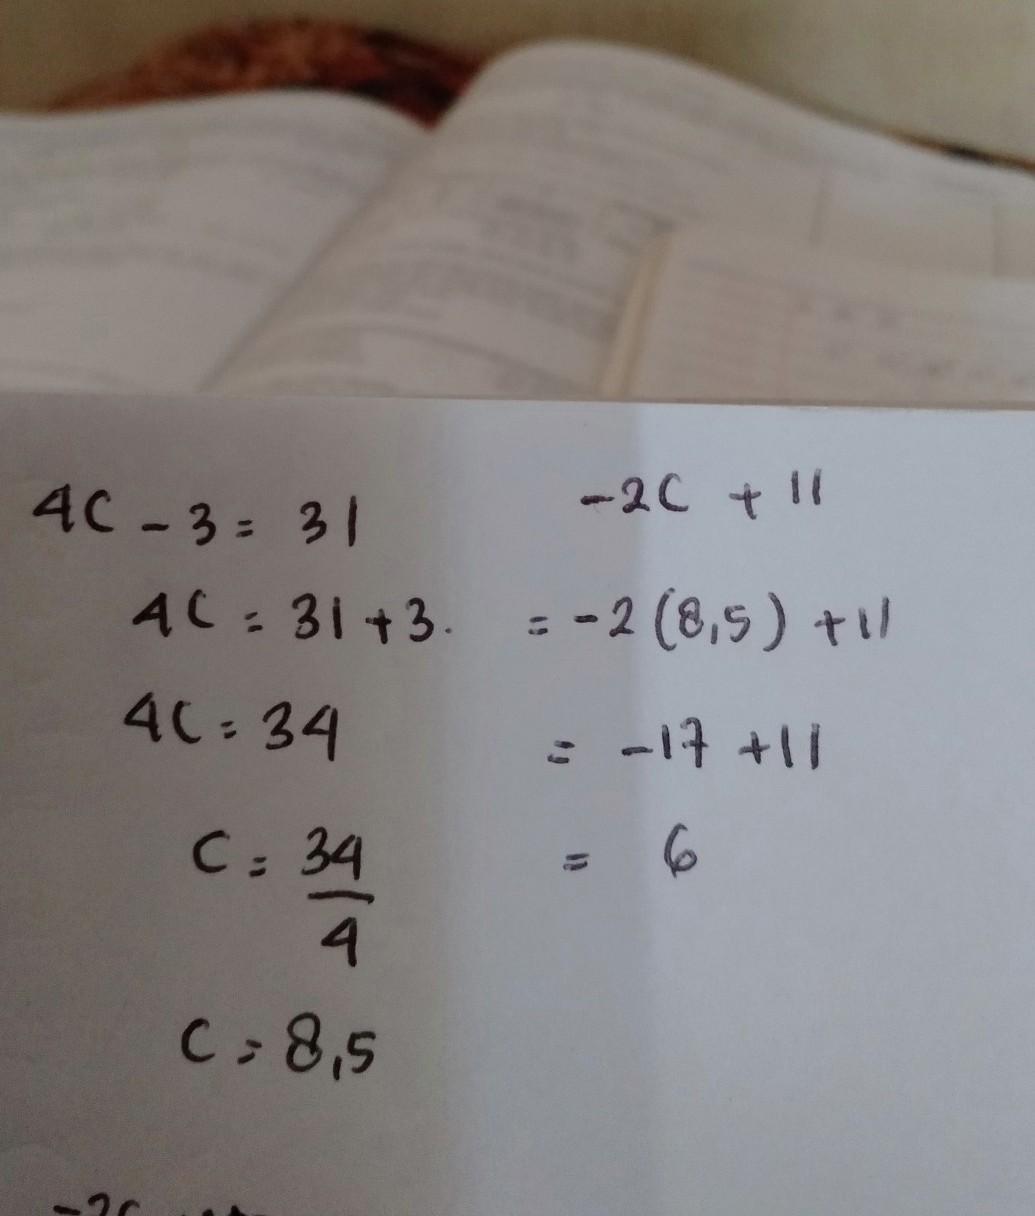 4C - 3 = 31
4C = 31 + 3.
4C = 34
C = 34
4
C = 8,5
-2C + 11
= -2 (8,5) + 11
= -17 + 11
= 6